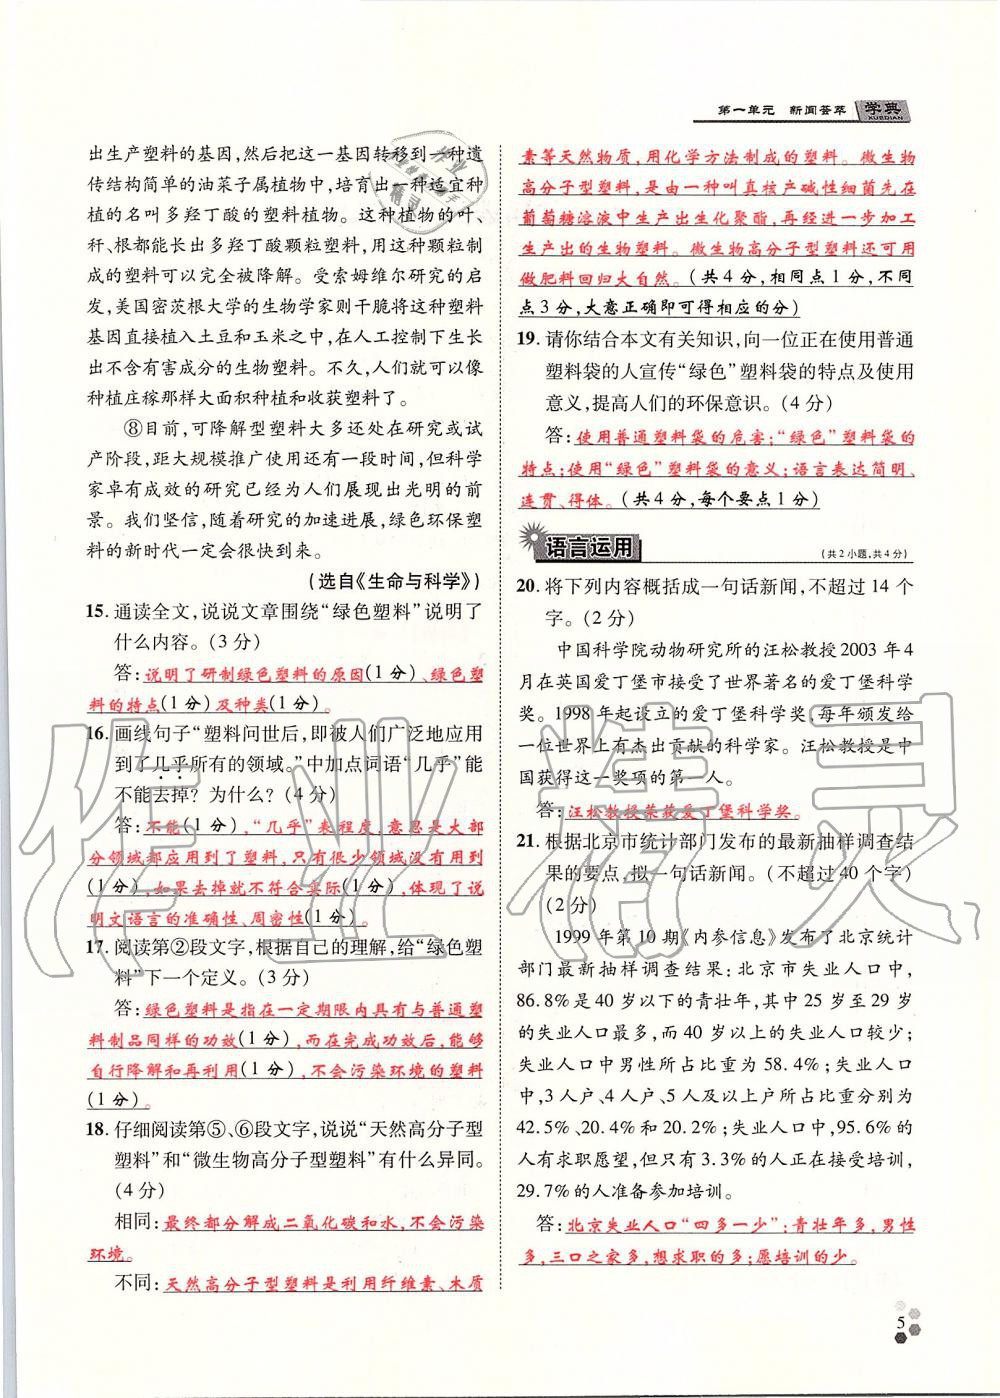 第一单元 新闻荟萃 学典
XUEDIAN
出生产塑料的基因,然后把这一基因转移到一种遗
传结构简单的油菜子属植物中,培育出一种适宜种
植的名叫多羟丁酸的塑料植物。这种植物的叶、
秆、根都能长出多羟丁酸颗粒塑料,用这种颗粒制
成的塑料可以完全被降解。受索姆维尔研究的启
发,美国密茨根大学的生物学家则干脆将这种塑料
基因直接植入土豆和玉米之中,在人工控制下生长
出不含有害成分的生物塑料。不久,人们就可以像
种植庄稼那样大面积种植和收获塑料了。
⑧目前,可降解型塑料大多还处在研究或试
产阶段,距大规模推广使用还有一段时间,但科学
家卓有成效的研究已经为人们展现出光明的前
景。我们坚信,随着研究的加速进展,绿色环保塑
料的新时代一定会很快到来。
(选自《生命与科学》)
15. 通读全文,说说文章围绕“绿色塑料”说明了
什么内容。(3 分)
答:说明了研制绿色塑料的原因(1 分)、绿色塑
料的特点(1 分)及种类(1 分)。
16. 画线句子“塑料问世后,即被人们广泛地应用
到了几乎所有的领域。”中加点词语“几乎”能
不能去掉? 为什么? (4 分)
答:不能(1 分),“几乎”表程度,意思是大部
分领域都应用到了塑料,只有很少领域没有用到
(1 分),如果去掉就不符合实际(1 分),体现了说
明文语言的准确性、周密性(1 分)。
17. 阅读第②段文字,根据自己的理解,给“绿色塑
料”下一个定义。(3 分)
答:绿色塑料是指在一定期限内具有与普通塑
料制品同样的功效(1 分),而在完成功效后,能够
自行降解和再利用(1 分),不会污染环境的塑料
(1 分)。
18. 仔细阅读第⑤、⑥段文字,说说“天然高分子型
塑料”和“微生物高分子型塑料”有什么异同。
(4 分)
相同:最终都分解成二氧化碳和水,不会污染
环境。
不同:天然高分子型塑料是利用纤维素、木质
素等天然物质,用化学方法制成的塑料。微生物
高分子型塑料,是由一种叫真核产碱性细菌先在
葡萄糖溶液中生产出生化聚酯,再经进一步加工
生产出的生物塑料。微生物高分子型塑料还可用
做肥料回归大自然。(共 4 分,相同点 1 分,不同
点 3 分,大意正确即可得相应的分)
19. 请你结合本文有关知识,向一位正在使用普通
塑料袋的人宣传“绿色”塑料袋的特点及使用
意义,提高人们的环保意识。(4 分)
答:使用普通塑料袋的危害;“绿色”塑料袋的
特点;使用“绿色”塑料袋的意义;语言表达简明、
连贯、得体。(共 4 分,每个要点 1 分)
语言运用 (共 2 小题,共 4 分)
20. 将下列内容概括成一句话新闻,不超过 14 个
字。(2 分)
中国科学院动物研究所的汪松教授 2003 年 4
月在英国爱丁堡市接受了世界著名的爱丁堡科学
奖。1998 年起设立的爱丁堡科学奖,每年颁发给
一位世界上有杰出贡献的科学家。汪松教授是中
国获得这一奖项的第一人。
答:汪松教授荣获爱丁堡科学奖。
21. 根据北京市统计部门发布的最新抽样调查结
果的要点,拟一句话新闻。(不超过 40 个字)
(2 分)
1999 年第 10 期《内参信息》发布了北京统计
部门最新抽样调查结果:北京市失业人口中,
86.8%是 40 岁以下的青壮年,其中 25 岁至 29 岁
的失业人口最多,而 40 岁以上的失业人口较少;
失业人口中男性所占比重为 58.4%;失业人口
中,3 人户、4 人户、5 人及以上户所占比重分别为
42.5%、20.4%和 20.2%;失业人口中,95.6%的
人有求职愿望,但只有 3.3%的人正在接受培训,
29.7%的人准备参加培训。
答:北京失业人口“四多一少”;青壮年多,男性
多,三口之家多,想求职的多;愿培训的少。
5
作业精灵